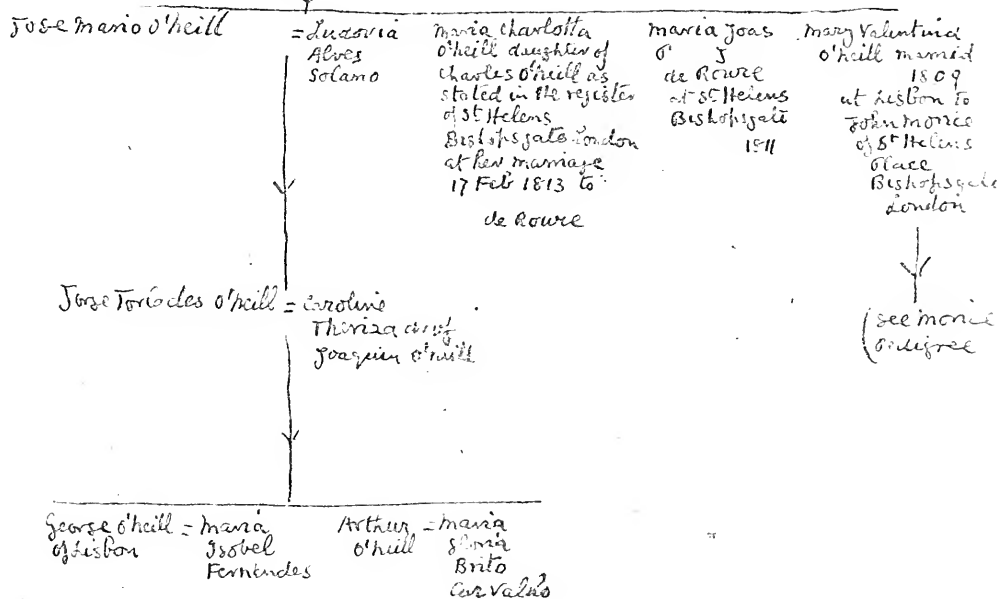 Jose Mario O'Neill
= Ludovia
Alves
Solano
Maria Charlotta
O'Neill daughter of
Charles O'Neill as
stated in the register
of St Helens
Bishopsgate London
at her marriage
17 Feb 1813 to
de Roure
Maria Joas
J
de Roure
at St Helens
Bishopsgate
1811
Mary Valentina
O'Neill married
1809
at Lisbon to
John Morice
of St Helens
Place
Bishopsgate
London
(see Morice
Pedigree
Jorge Torlades O'Neill = Caroline
Theriza d of
Joaquin O'Neill
George O'Neill = Maria
of Lisbon
Isobel
Fernandes
Arthur = Maria
O'Neill
Gloria
Brito